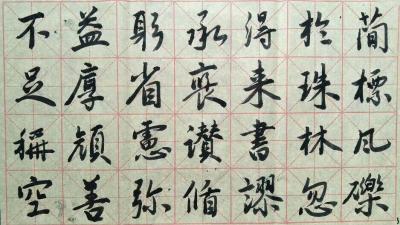 簡標瓦礫
於珠林忽
得来書謬
承褒讃循
躬省慮弥
益厚顔善
不足稱空